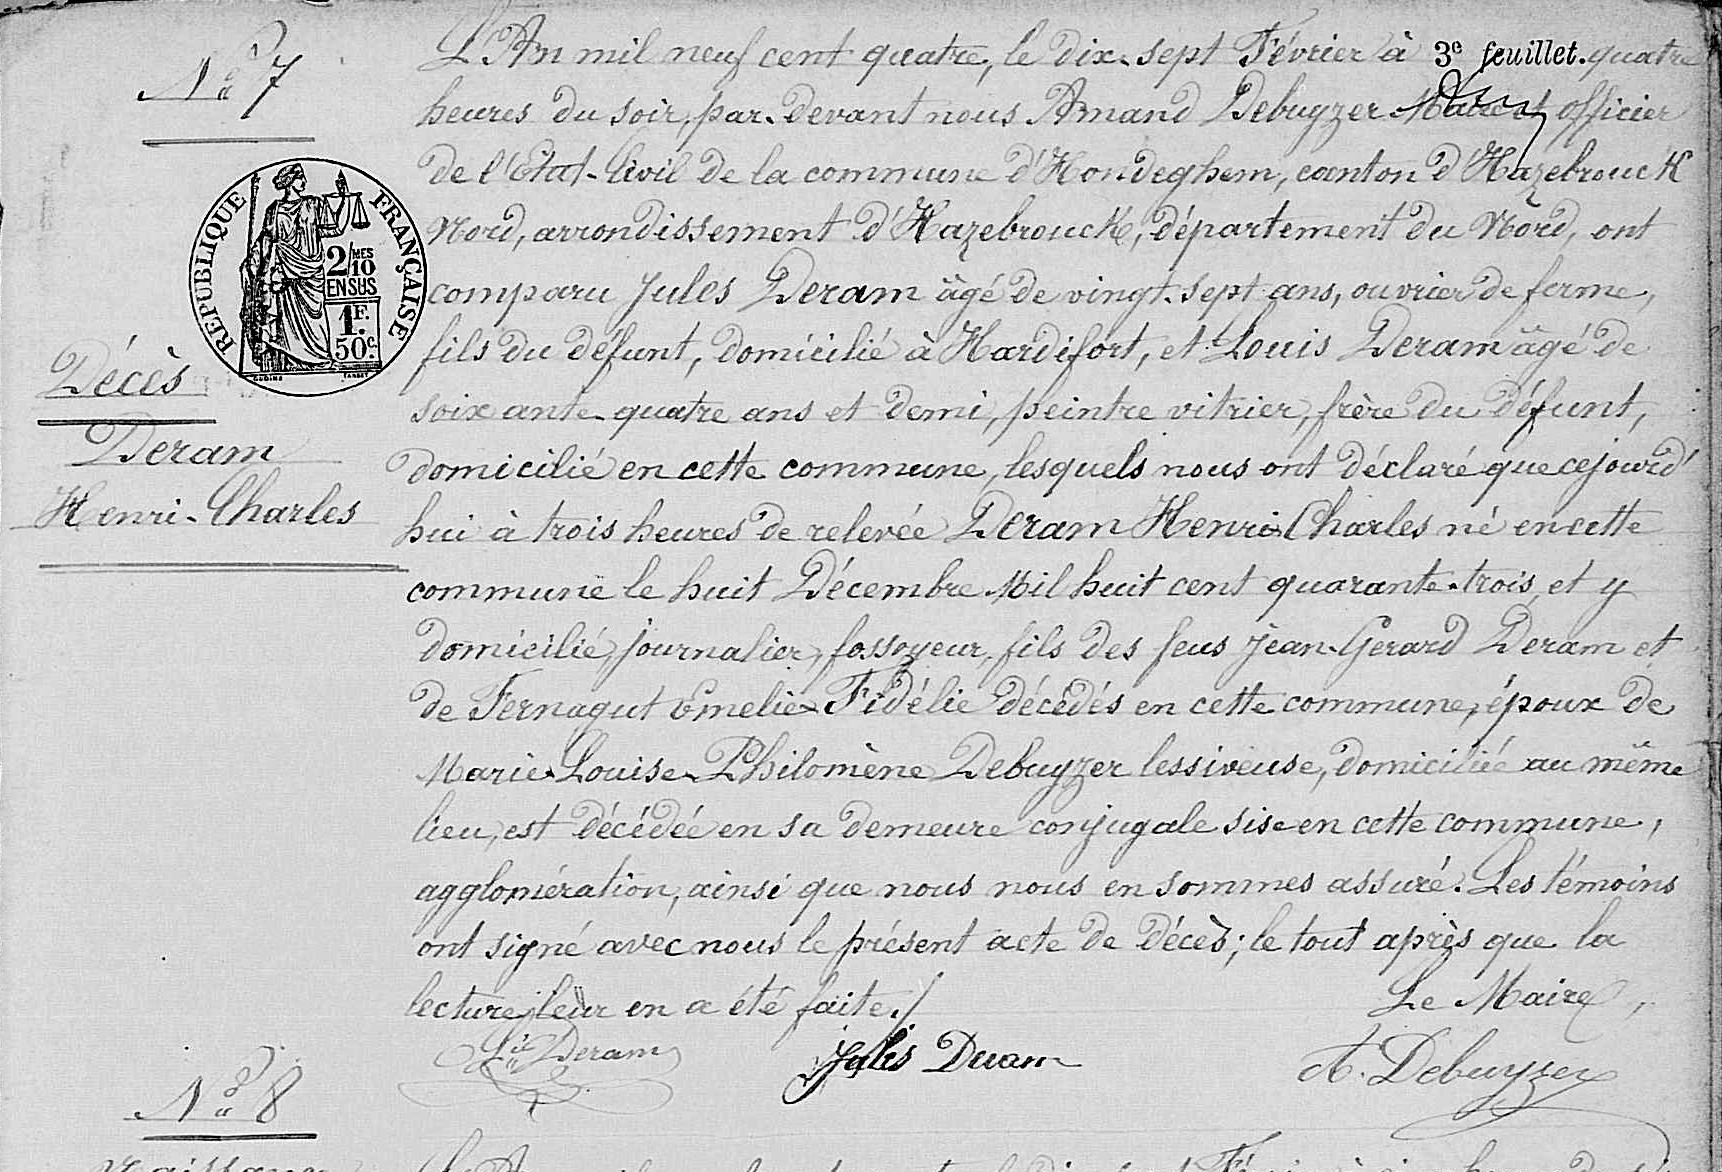 N° 7
L'An mil neuf cent quatre, le dix-sept Février à 3e feuillet. quatre
heures du soir, par-devant nous Amand Debuyzer Maire et officier
de l'Etat-Civil de la commune d'Hondeghem, canton d'Hazebrouck
Nord, arrondissement d'Hazebrouck, département du Nord, ont
comparu Jules Deram âgé de vingt-sept ans, ouvrier de ferme,
fils du défunt, domicilié à Hardifort, et Louis Deram âgé de
soixante-quatre ans et demi, peintre vitrier, frère du défunt,
domicilié en cette commune, lesquels nous ont déclaré que cejourd'
hui à trois heures de relevée Deram Henri-Charles né en cette
commune le huit Décembre Mil huit cent quarante-trois, et y
domicilié, journalier, fossoyeur, fils des feus Jean-Gerard Deram et
de Fernagut Emelie-Fidélie décédés en cette commune, époux de
Marie-Louise-Philomène Debuyzer lessiveuse, domiciliée au même
lieu, est décédée en sa demeure conjugale sise en cette commune,
agglomération, ainsi que nous nous en sommes assuré. Les témoins
ont signé avec nous le présent acte de décès; le tout après que la
lecture leur en a été faite./
Le Maire,
Ls Deram
Jules Deram
A. Debuyzer
RÉPUBLIQUE FRANÇAISE
2/MES
10
EN SUS
1F.
50c.
Décès
Deram
Henri-Charles
N° 8
Naissance